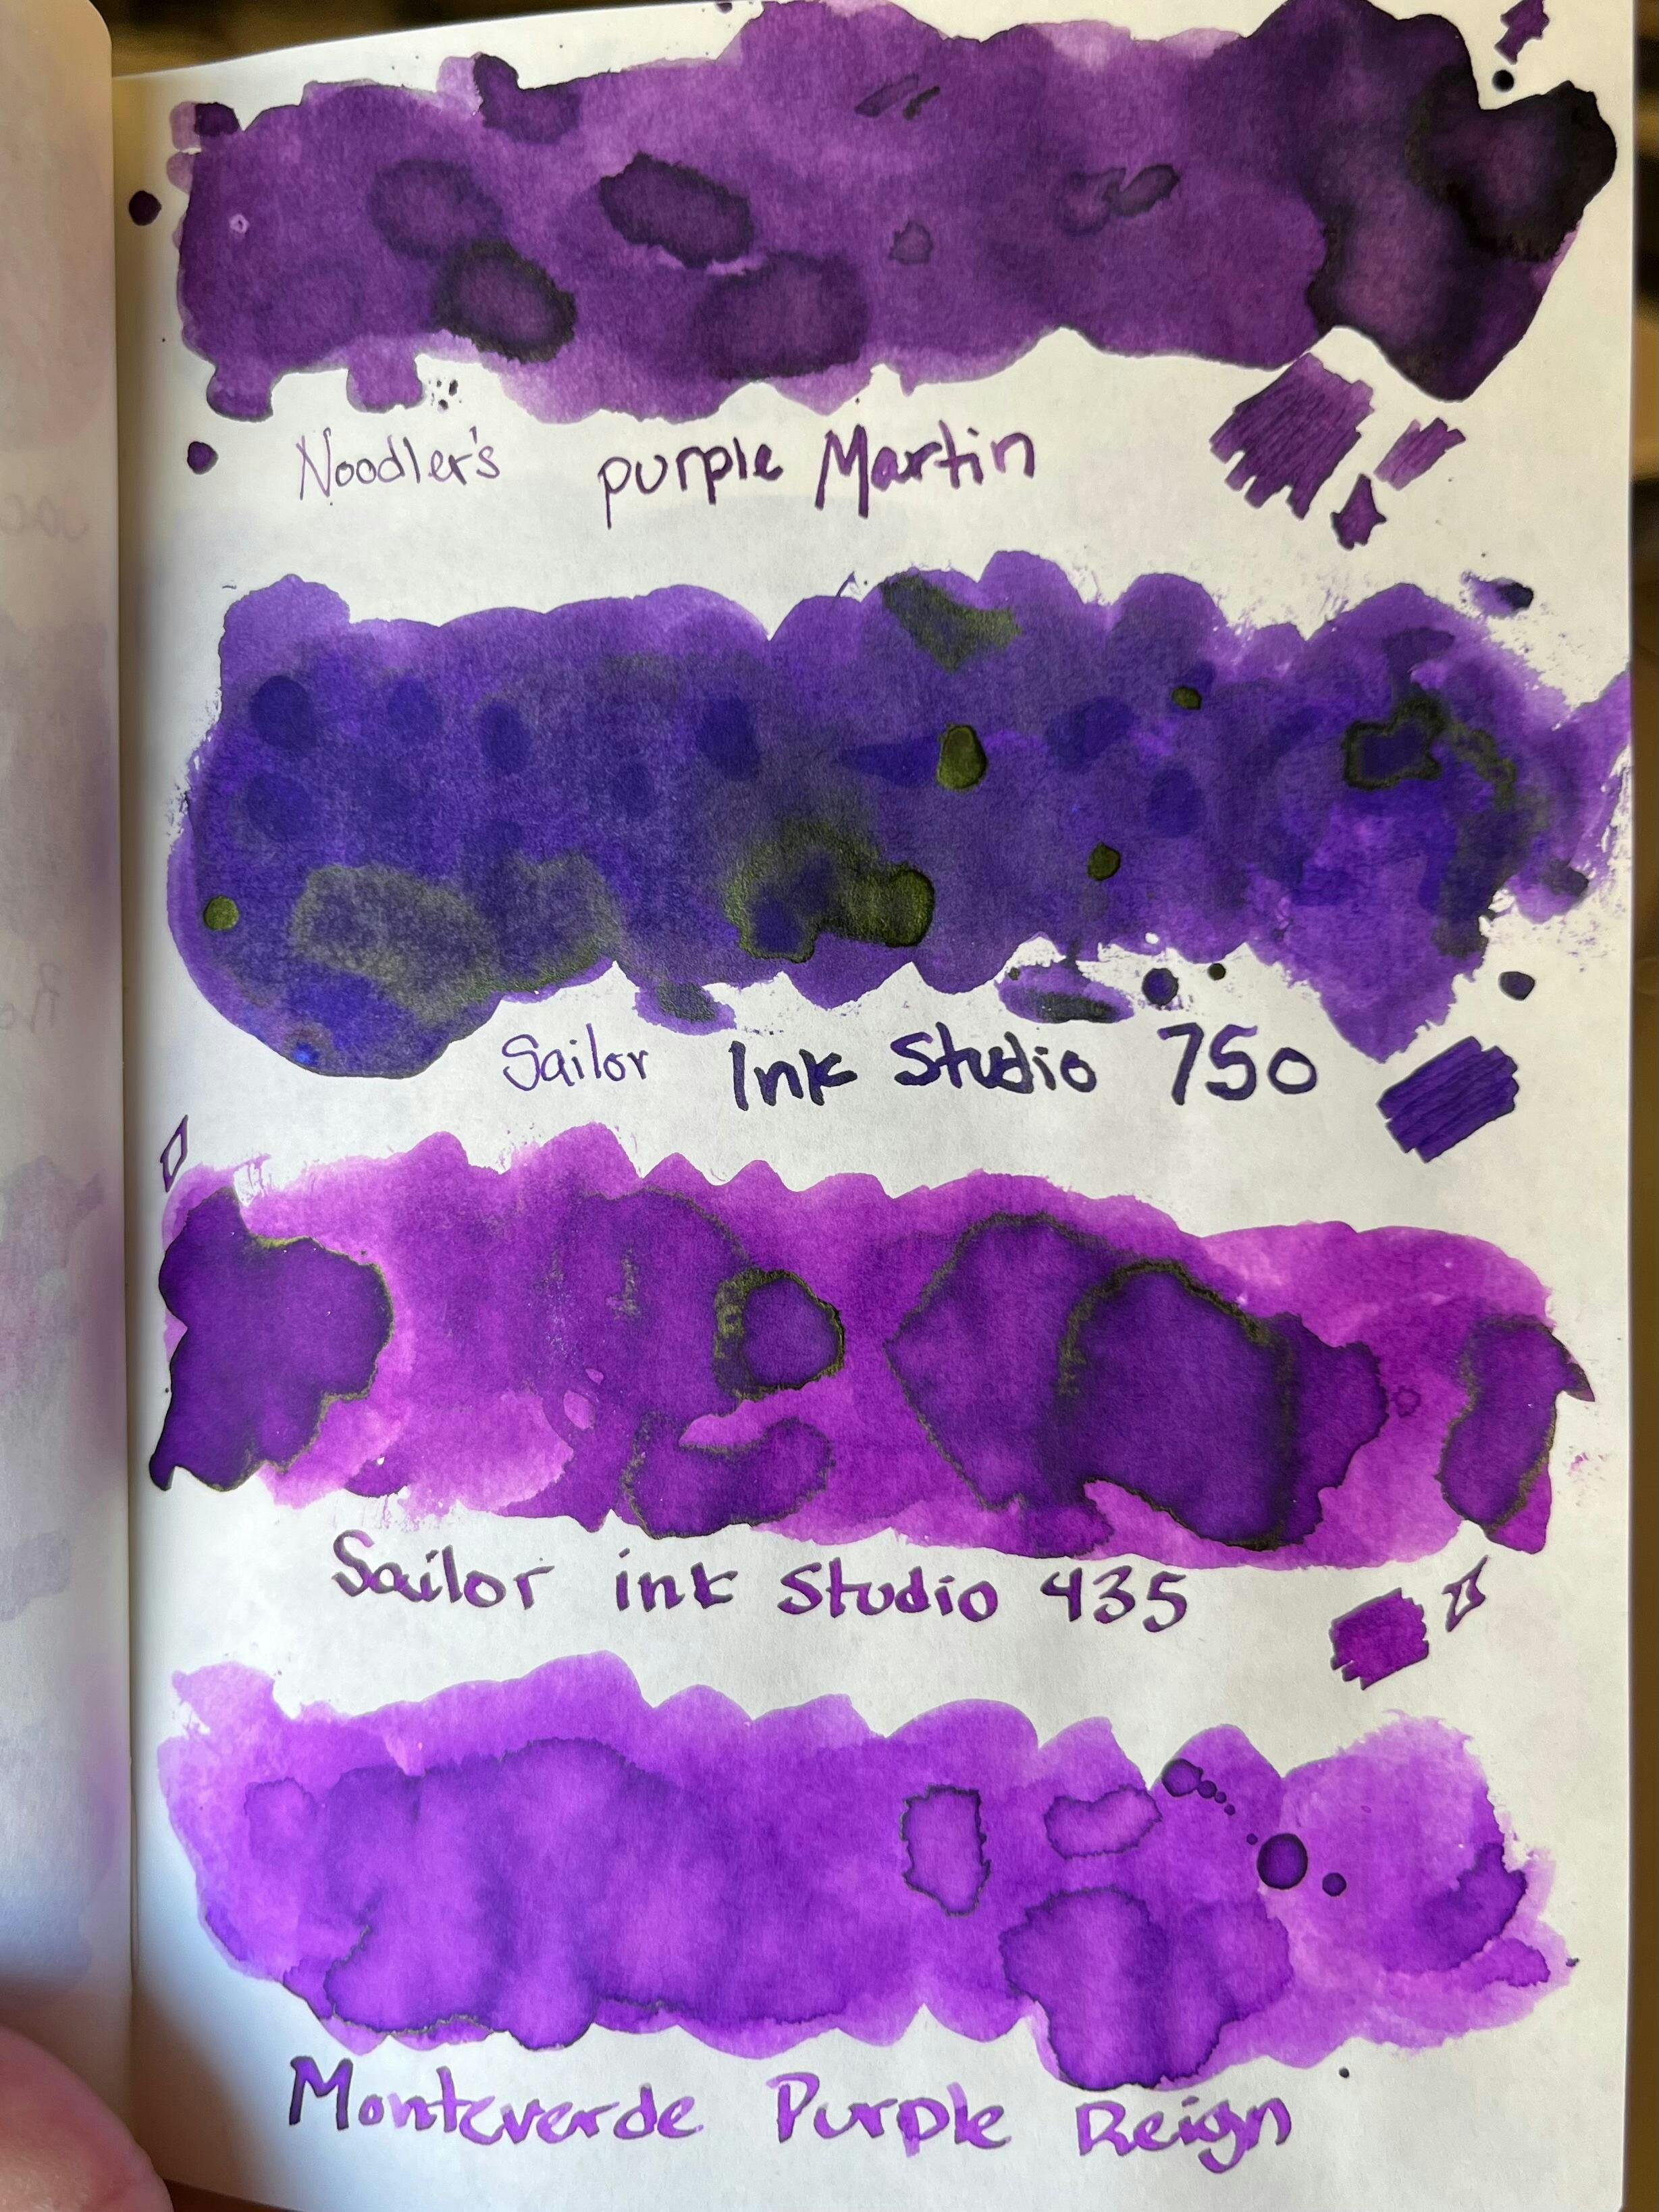 Noodler's purple Martin
Sailor Ink Studio 750
Sailor ink Studio 435
Monteverde Purple Reign